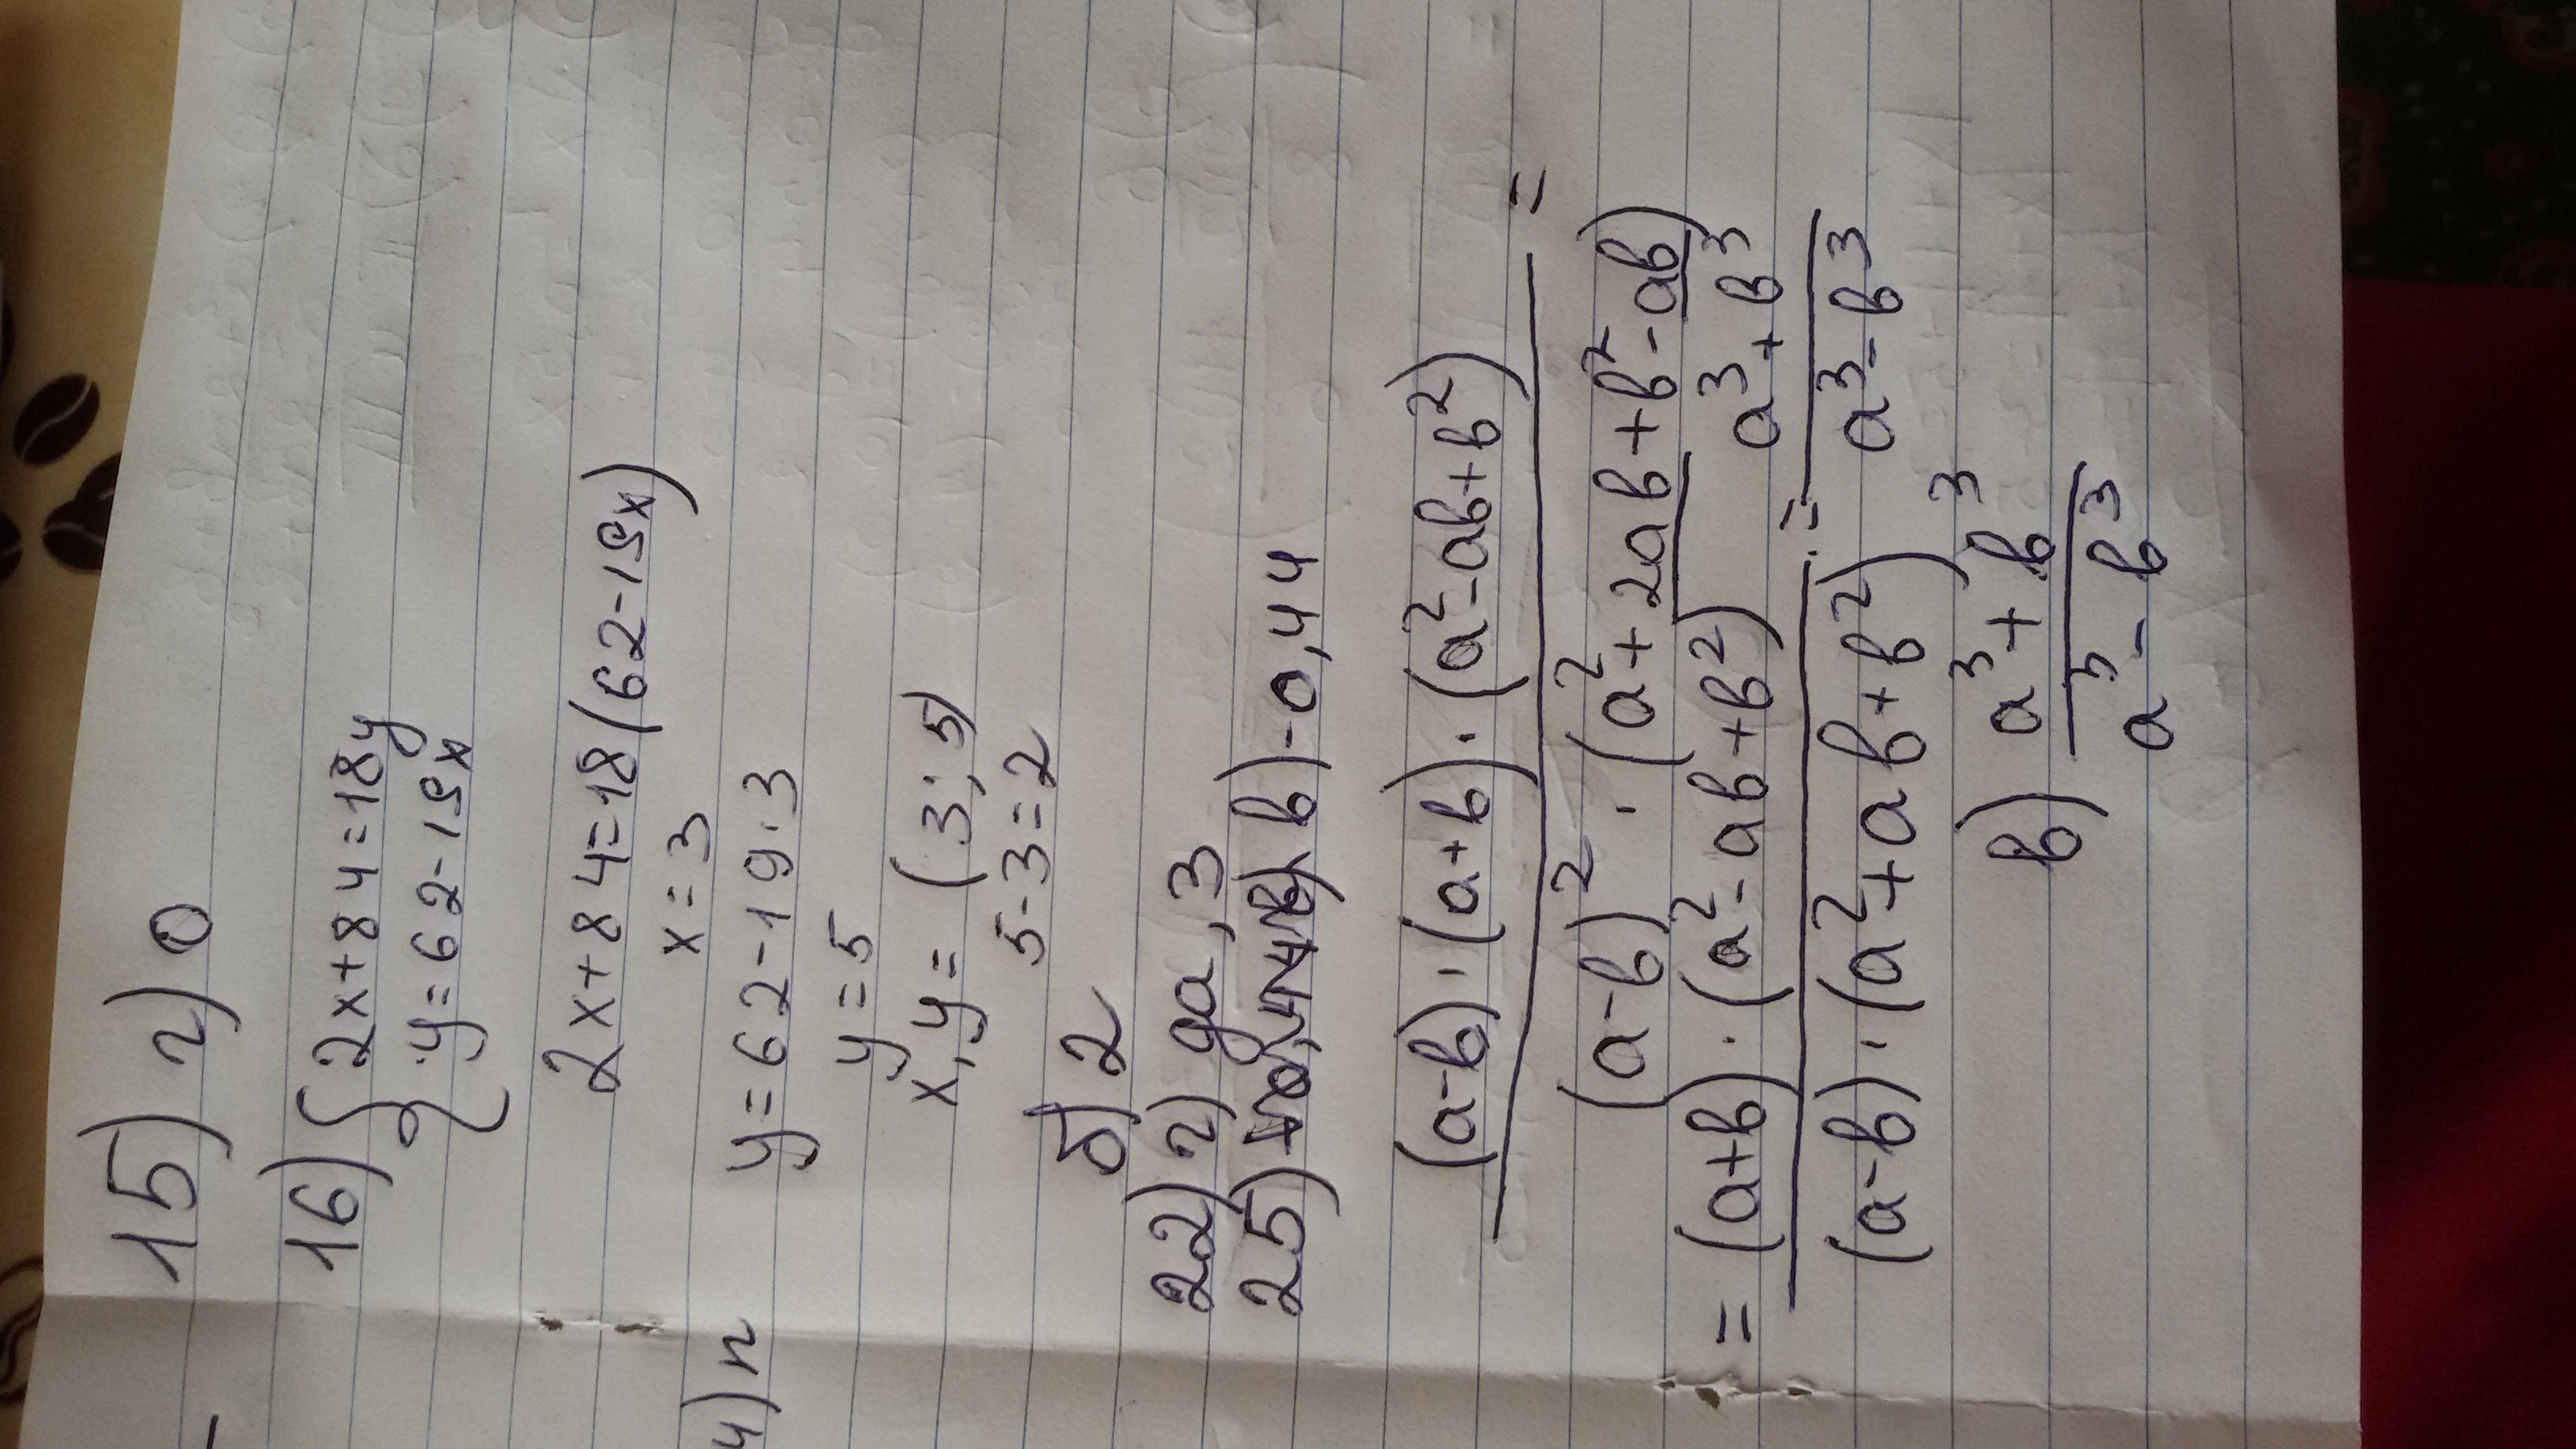 15) г) 0
16) { 2x+84=18y
y=62-19x
2x+84=18(62-19x)
x=3
4) n
y=62-19·3
y=5
x,y=(3;5)
5-3=2
б) 2
22) г) да, 3
25) в) -0,44
(a-b)·(a+b)·(a²-ab+b²) =
(a-b)²·(a²+2ab+b²-ab)
= (a+b)·(a²-ab+b²) = a³+b³
(a-b)·(a²+ab+b²) a³-b³
в) a³+b³
a³-b³